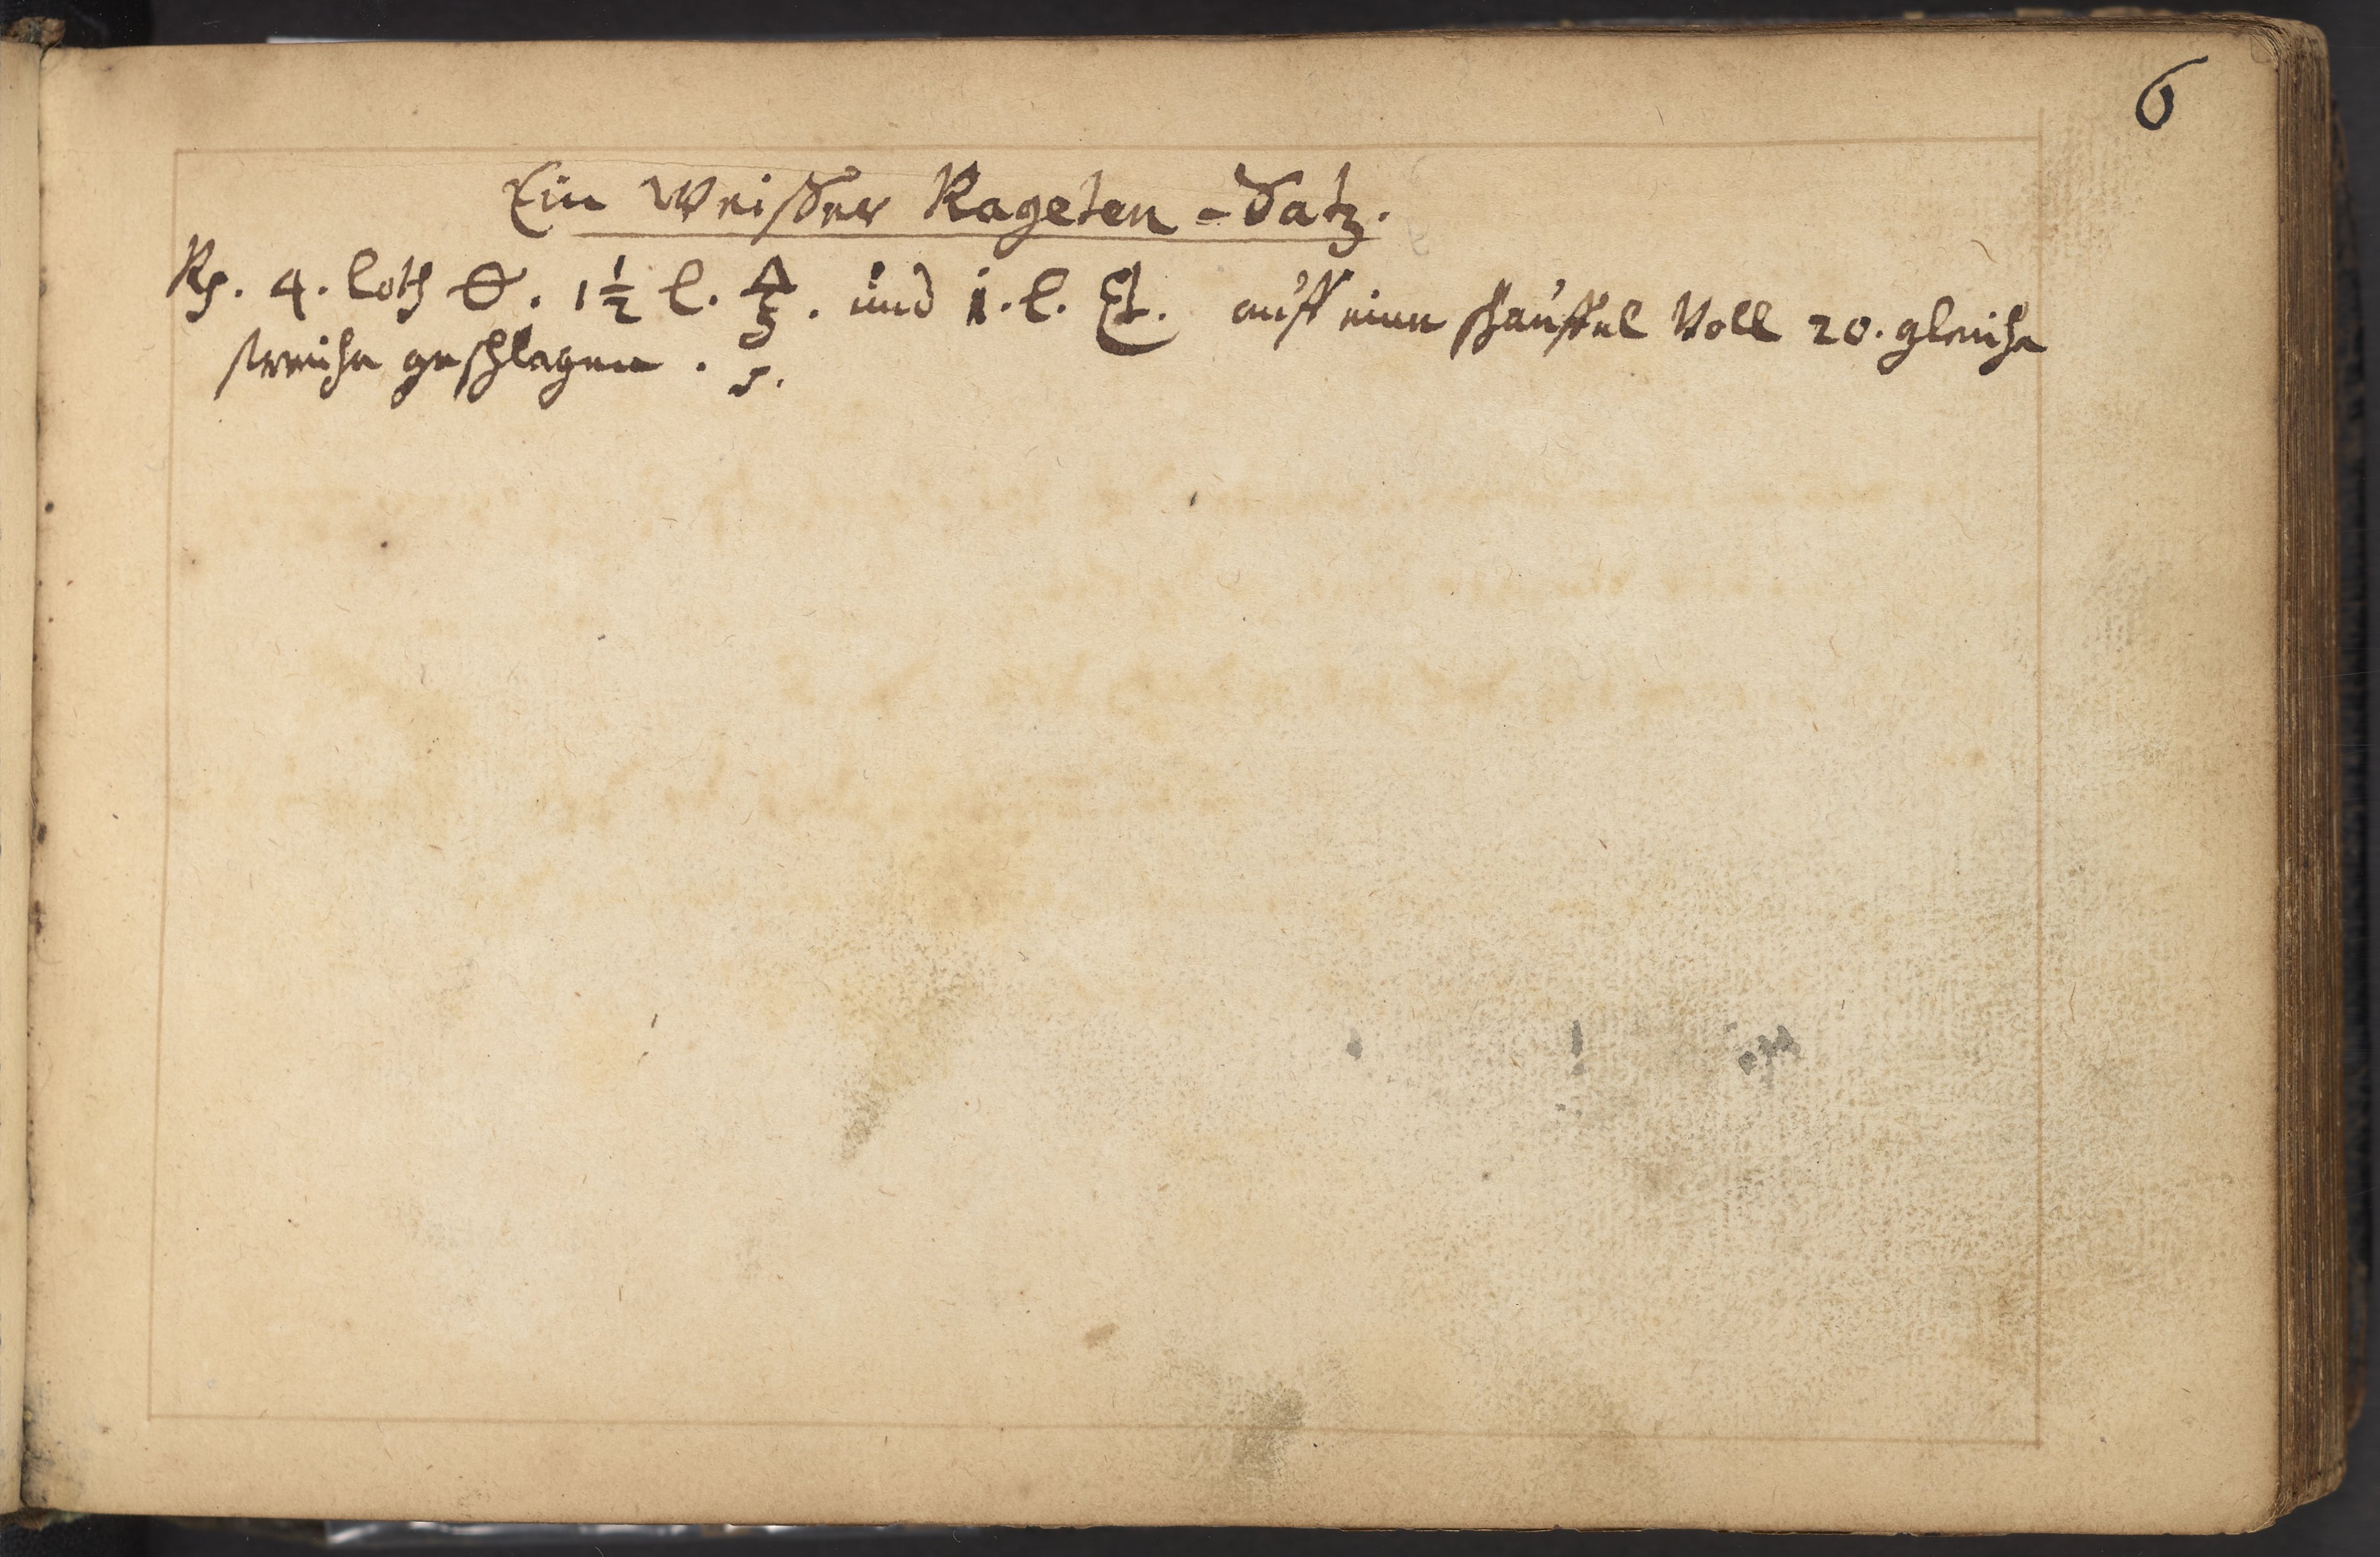 6
Ein Weisser Rageten-Satz.
Rp. 4. loth 🜔. 1½ l. 🜍. und 1. l. auff eine schauffel Voll 20. gleiche
streiche geschlagen.